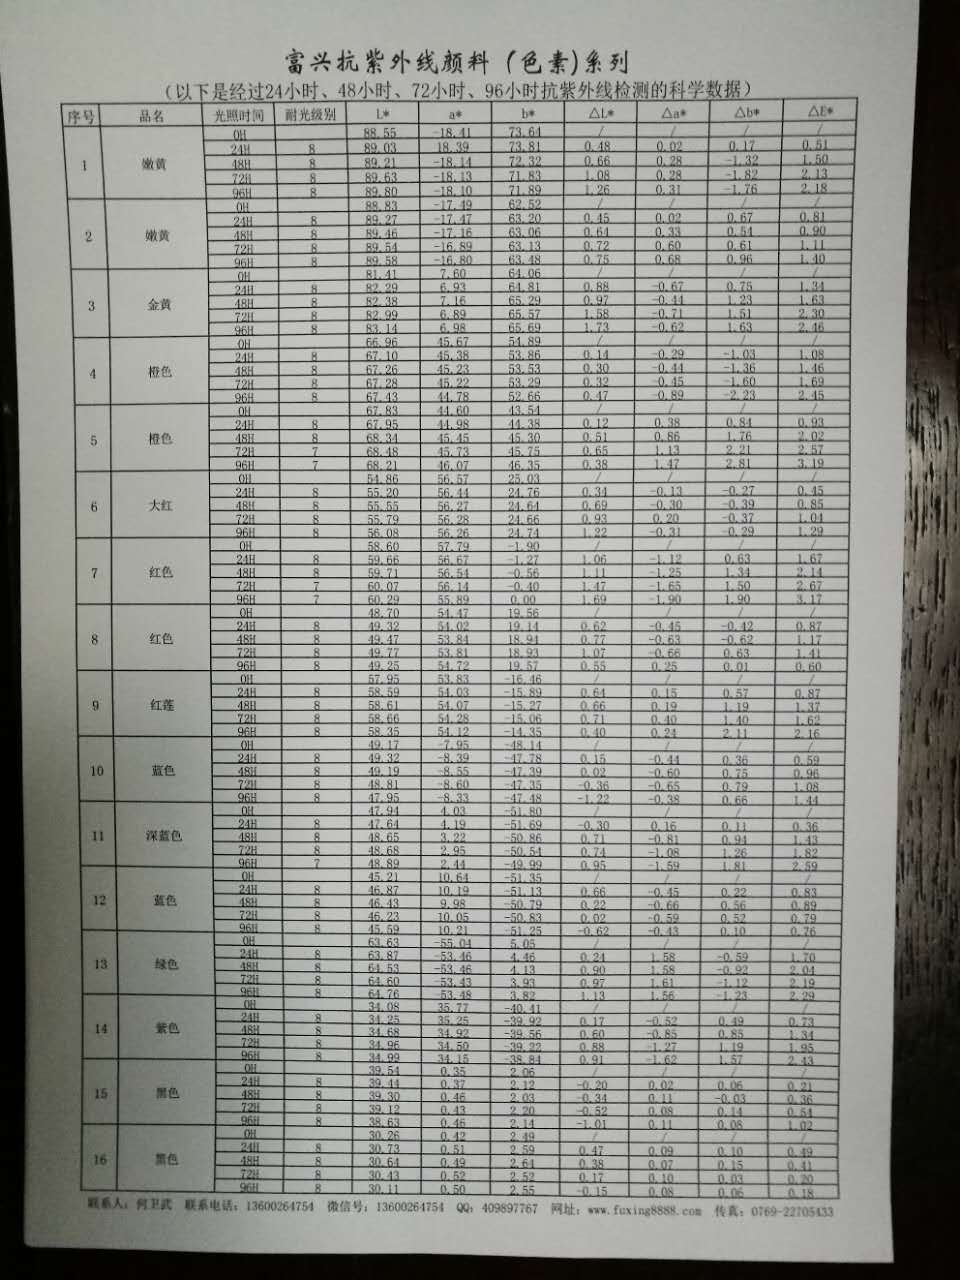 富兴抗紫外线颜料（色素)系列
（以下是经过24小时、48小时、72小时、96小时抗紫外线检测的科学数据）
序号 品名 光照时间 耐光级别 L* a* b* △L* △a* △b* △E*
0H 88.55 -18.41 73.64 / / / /
24H 8 89.03 18.39 73.81 0.48 0.02 0.17 0.51
1 嫩黄 48H 8 89.21 -18.14 72.32 0.66 0.28 -1.32 1.50
72H 8 89.63 -18.13 71.83 1.08 0.28 -1.82 2.13
96H 8 89.80 -18.10 71.89 1.26 0.31 -1.76 2.18
0H 88.83 -17.49 62.52 / / / /
24H 8 89.27 -17.47 63.20 0.45 0.02 0.67 0.81
2 嫩黄 48H 8 89.46 -17.16 63.06 0.64 0.33 0.54 0.90
72H 8 89.54 -16.89 63.13 0.72 0.60 0.61 1.11
96H 8 89.58 -16.80 63.48 0.75 0.68 0.96 1.40
0H 81.41 7.60 64.06 / / / /
24H 8 82.29 6.93 64.81 0.88 -0.67 0.75 1.34
3 金黄 48H 8 82.38 7.16 65.29 0.97 -0.44 1.23 1.63
72H 8 82.99 6.89 65.57 1.58 -0.71 1.51 2.30
96H 8 83.14 6.98 65.69 1.73 -0.62 1.63 2.46
0H 66.96 45.67 54.89 / / / /
24H 8 67.10 45.38 53.86 0.14 -0.29 -1.03 1.08
4 橙色 48H 8 67.26 45.23 53.53 0.30 -0.44 -1.36 1.46
72H 8 67.28 45.22 53.29 0.32 -0.45 -1.60 1.69
96H 8 67.43 44.78 52.66 0.47 -0.89 -2.23 2.45
0H 67.83 44.60 43.54 / / / /
24H 8 67.95 44.98 44.38 0.12 0.38 0.84 0.93
5 橙色 48H 8 68.34 45.45 45.30 0.51 0.86 1.76 2.02
72H 7 68.48 45.73 45.75 0.65 1.13 2.21 2.57
96H 7 68.21 46.07 46.35 0.38 1.47 2.81 3.19
0H 54.86 56.57 25.03 / / / /
24H 8 55.20 56.44 24.76 0.34 -0.13 -0.27 0.45
6 大红 48H 8 55.55 56.27 24.64 0.69 -0.30 -0.39 0.85
72H 8 55.79 56.28 24.66 0.93 0.20 -0.37 1.04
96H 8 56.08 56.26 24.74 1.22 -0.31 -0.29 1.29
0H 58.60 57.79 -1.90 / / / /
24H 8 59.66 56.67 -1.27 1.06 -1.12 0.63 1.67
7 红色 48H 8 59.71 56.54 -0.56 1.11 -1.25 1.34 2.14
72H 7 60.07 56.14 -0.40 1.47 -1.65 1.50 2.67
96H 7 60.29 55.89 0.00 1.69 -1.90 1.90 3.17
0H 48.70 54.47 19.56 / / / /
24H 8 49.32 54.02 19.14 0.62 -0.45 -0.42 0.87
8 红色 48H 8 49.47 53.84 18.94 0.77 -0.63 -0.62 1.17
72H 8 49.77 53.81 18.93 1.07 -0.66 0.63 1.41
96H 8 49.25 54.72 19.57 0.55 0.25 0.01 0.60
0H 57.95 53.83 -16.46 / / / /
24H 8 58.59 54.03 -15.89 0.64 0.15 0.57 0.87
9 红莲 48H 8 58.61 54.07 -15.27 0.66 0.19 1.19 1.37
72H 8 58.66 54.28 -15.06 0.71 0.40 1.40 1.62
96H 8 58.35 54.12 -14.35 0.40 0.24 2.11 2.16
0H 49.17 -7.95 -48.14 / / / /
24H 8 49.32 -8.39 -47.78 0.15 -0.44 0.36 0.59
10 蓝色 48H 8 49.19 -8.55 -47.39 0.02 -0.60 0.75 0.96
72H 8 48.81 -8.60 -47.35 -0.36 -0.65 0.79 1.08
96H 8 47.95 -8.33 -47.48 -1.22 -0.38 0.66 1.44
0H 47.94 4.03 -51.80 / / / /
24H 8 47.64 4.19 -51.69 -0.30 0.16 0.11 0.36
11 深蓝色 48H 8 48.65 3.22 -50.86 0.71 -0.81 0.94 1.43
72H 8 48.68 2.95 -50.54 0.74 -1.08 1.26 1.82
96H 7 48.89 2.44 -49.99 0.95 -1.59 1.81 2.59
0H 45.21 10.64 -51.35 / / / /
24H 8 46.87 10.19 -51.13 0.66 -0.45 0.22 0.83
12 蓝色 48H 8 46.43 9.98 -50.79 0.22 -0.66 0.56 0.89
72H 8 46.23 10.05 -50.83 0.02 -0.59 0.52 0.79
96H 8 45.59 10.21 -51.25 -0.62 -0.43 0.10 0.76
0H 63.63 -55.04 5.05 / / / /
24H 8 63.87 -53.46 4.46 0.24 1.58 -0.59 1.70
13 绿色 48H 8 64.53 -53.46 4.13 0.90 1.58 -0.92 2.04
72H 8 64.60 -53.43 3.93 0.97 1.61 -1.12 2.19
96H 8 64.76 -53.48 3.82 1.13 1.56 -1.23 2.29
0H 34.08 35.77 -40.41 / / / /
24H 8 34.25 35.25 -39.92 0.17 -0.52 0.49 0.73
14 紫色 48H 8 34.68 34.92 -39.56 0.60 -0.85 0.85 1.34
72H 8 34.96 34.50 -39.22 0.88 -1.27 1.19 1.95
96H 8 34.99 34.15 -38.84 0.91 -1.62 1.57 2.43
0H 39.54 0.35 2.06 / / / /
24H 8 39.44 0.37 2.12 -0.20 0.02 0.06 0.21
15 黑色 48H 8 39.30 0.46 2.03 -0.34 0.11 -0.03 0.36
72H 8 39.12 0.43 2.20 -0.52 0.08 0.14 0.54
96H 8 38.63 0.46 2.14 -1.01 0.11 0.08 1.02
0H 30.26 0.42 2.49 / / / /
24H 8 30.73 0.51 2.59 0.47 0.09 0.10 0.49
16 黑色 48H 8 30.64 0.49 2.64 0.38 0.07 0.15 0.41
72H 8 30.43 0.52 2.52 0.17 0.10 0.03 0.20
96H 8 30.11 0.50 2.55 -0.15 0.08 0.06 0.18
联系人：何卫武 联系电话：13600264754 微信号：13600264754 QQ：409897767 网址：www.fuxing8888.com 传真：0769-22705433